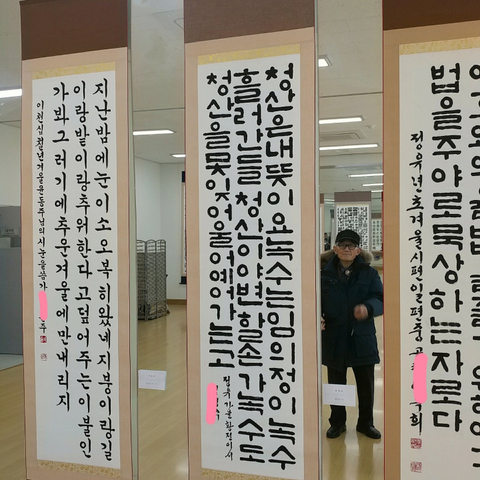 지난밤에눈이소오복히왔네지붕이랑길
이랑밭이랑추위한다고덮어주는이불인
가봐그러기에추운겨울에만내리지
이천십칠년겨울윤동주님의시눈을
청산은내뜻이요녹수는임의정이녹수
흘러간들청산이야변할손가녹수도
청산을못잊어울어예어가는고
정유가을황진이시
법을주야로묵상하는자로다
정유년초겨울시편일편중